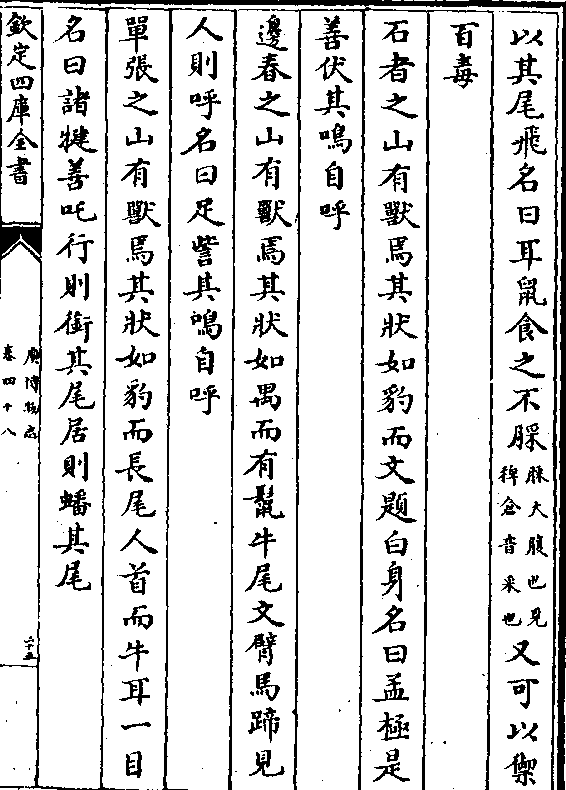 以其尾飛名曰耳鼠食之不䐆䐆大腹也見裨倉音采也又可以禦
百毒
石者之山有獸焉其狀如豹而文題白身名曰孟極是
善伏其鳴自呼
邊春之山有獸焉其狀如禺而有鬣牛尾文臂馬蹄見
人則呼名曰足訾其鳴自呼
單張之山有獸焉其狀如豹而長尾人首而牛耳一目
名曰諸犍善吒行則銜其尾居則蟠其尾
欽定四庫全書
廣博物志
卷四十八
二十五